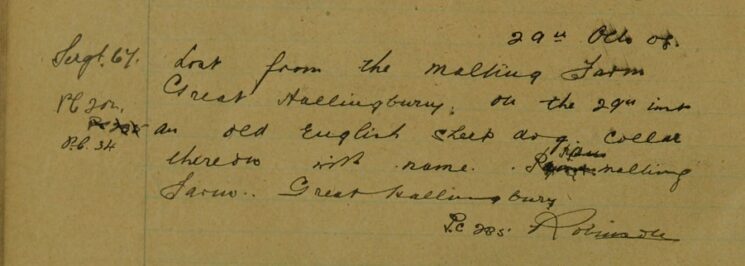 29th Octr 08.
Sergt. 67. Lost from the Malting Farm
Great Hallingbury. on the 29th inst
PC 201.
an old English sheep dog. Collar
P.C. 34
thereon with name. Malting
Farm.. Great Hallingbury
P.C 285. Robinson